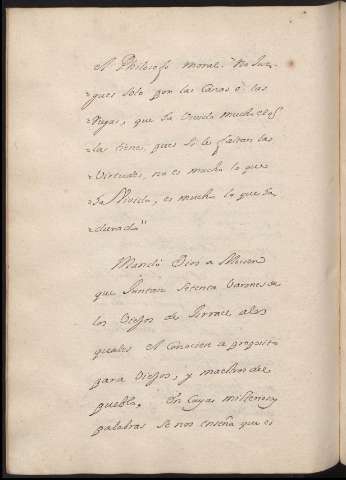 el Philosofo moral: "No Juz-
"gues solo por las Canas ò las
"Rugas, que ha vivido mucho el q.
"las tiene, pues si le faltan las
"virtudes, no es mucho lo que
"ha vivido, es mucho lo que ha
"durado"
Mandò Dios a Moises
que Juntase setenta Varones de
los Viejos de Israel a los
quales el conociese a proposito
para Viejos, y maestros del
pueblo. En cuyas misteriosas
palabras se nos enseña que es